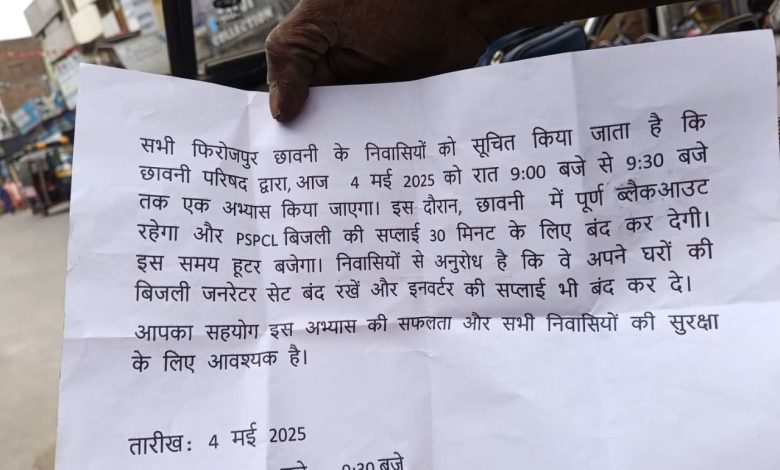 सभी फिरोजपुर छावनी के निवासियों को सूचित किया जाता है कि
छावनी परिषद द्वारा, आज 4 मई 2025 को रात 9:00 बजे से 9:30 बजे
तक एक अभ्यास किया जाएगा। इस दौरान, छावनी में पूर्ण ब्लैकआउट
रहेगा और PSPCL बिजली की सप्लाई 30 मिनट के लिए बंद कर देगी।
इस समय हूटर बजेगा। निवासियों से अनुरोध है कि वे अपने घरों की
बिजली जनरेटर सेट बंद रखें और इनवर्टर की सप्लाई भी बंद कर दे।
आपका सहयोग इस अभ्यास की सफलता और सभी निवासियों की सुरक्षा
के लिए आवश्यक है।
तारीख: 4 मई 2025
9:30 बजे